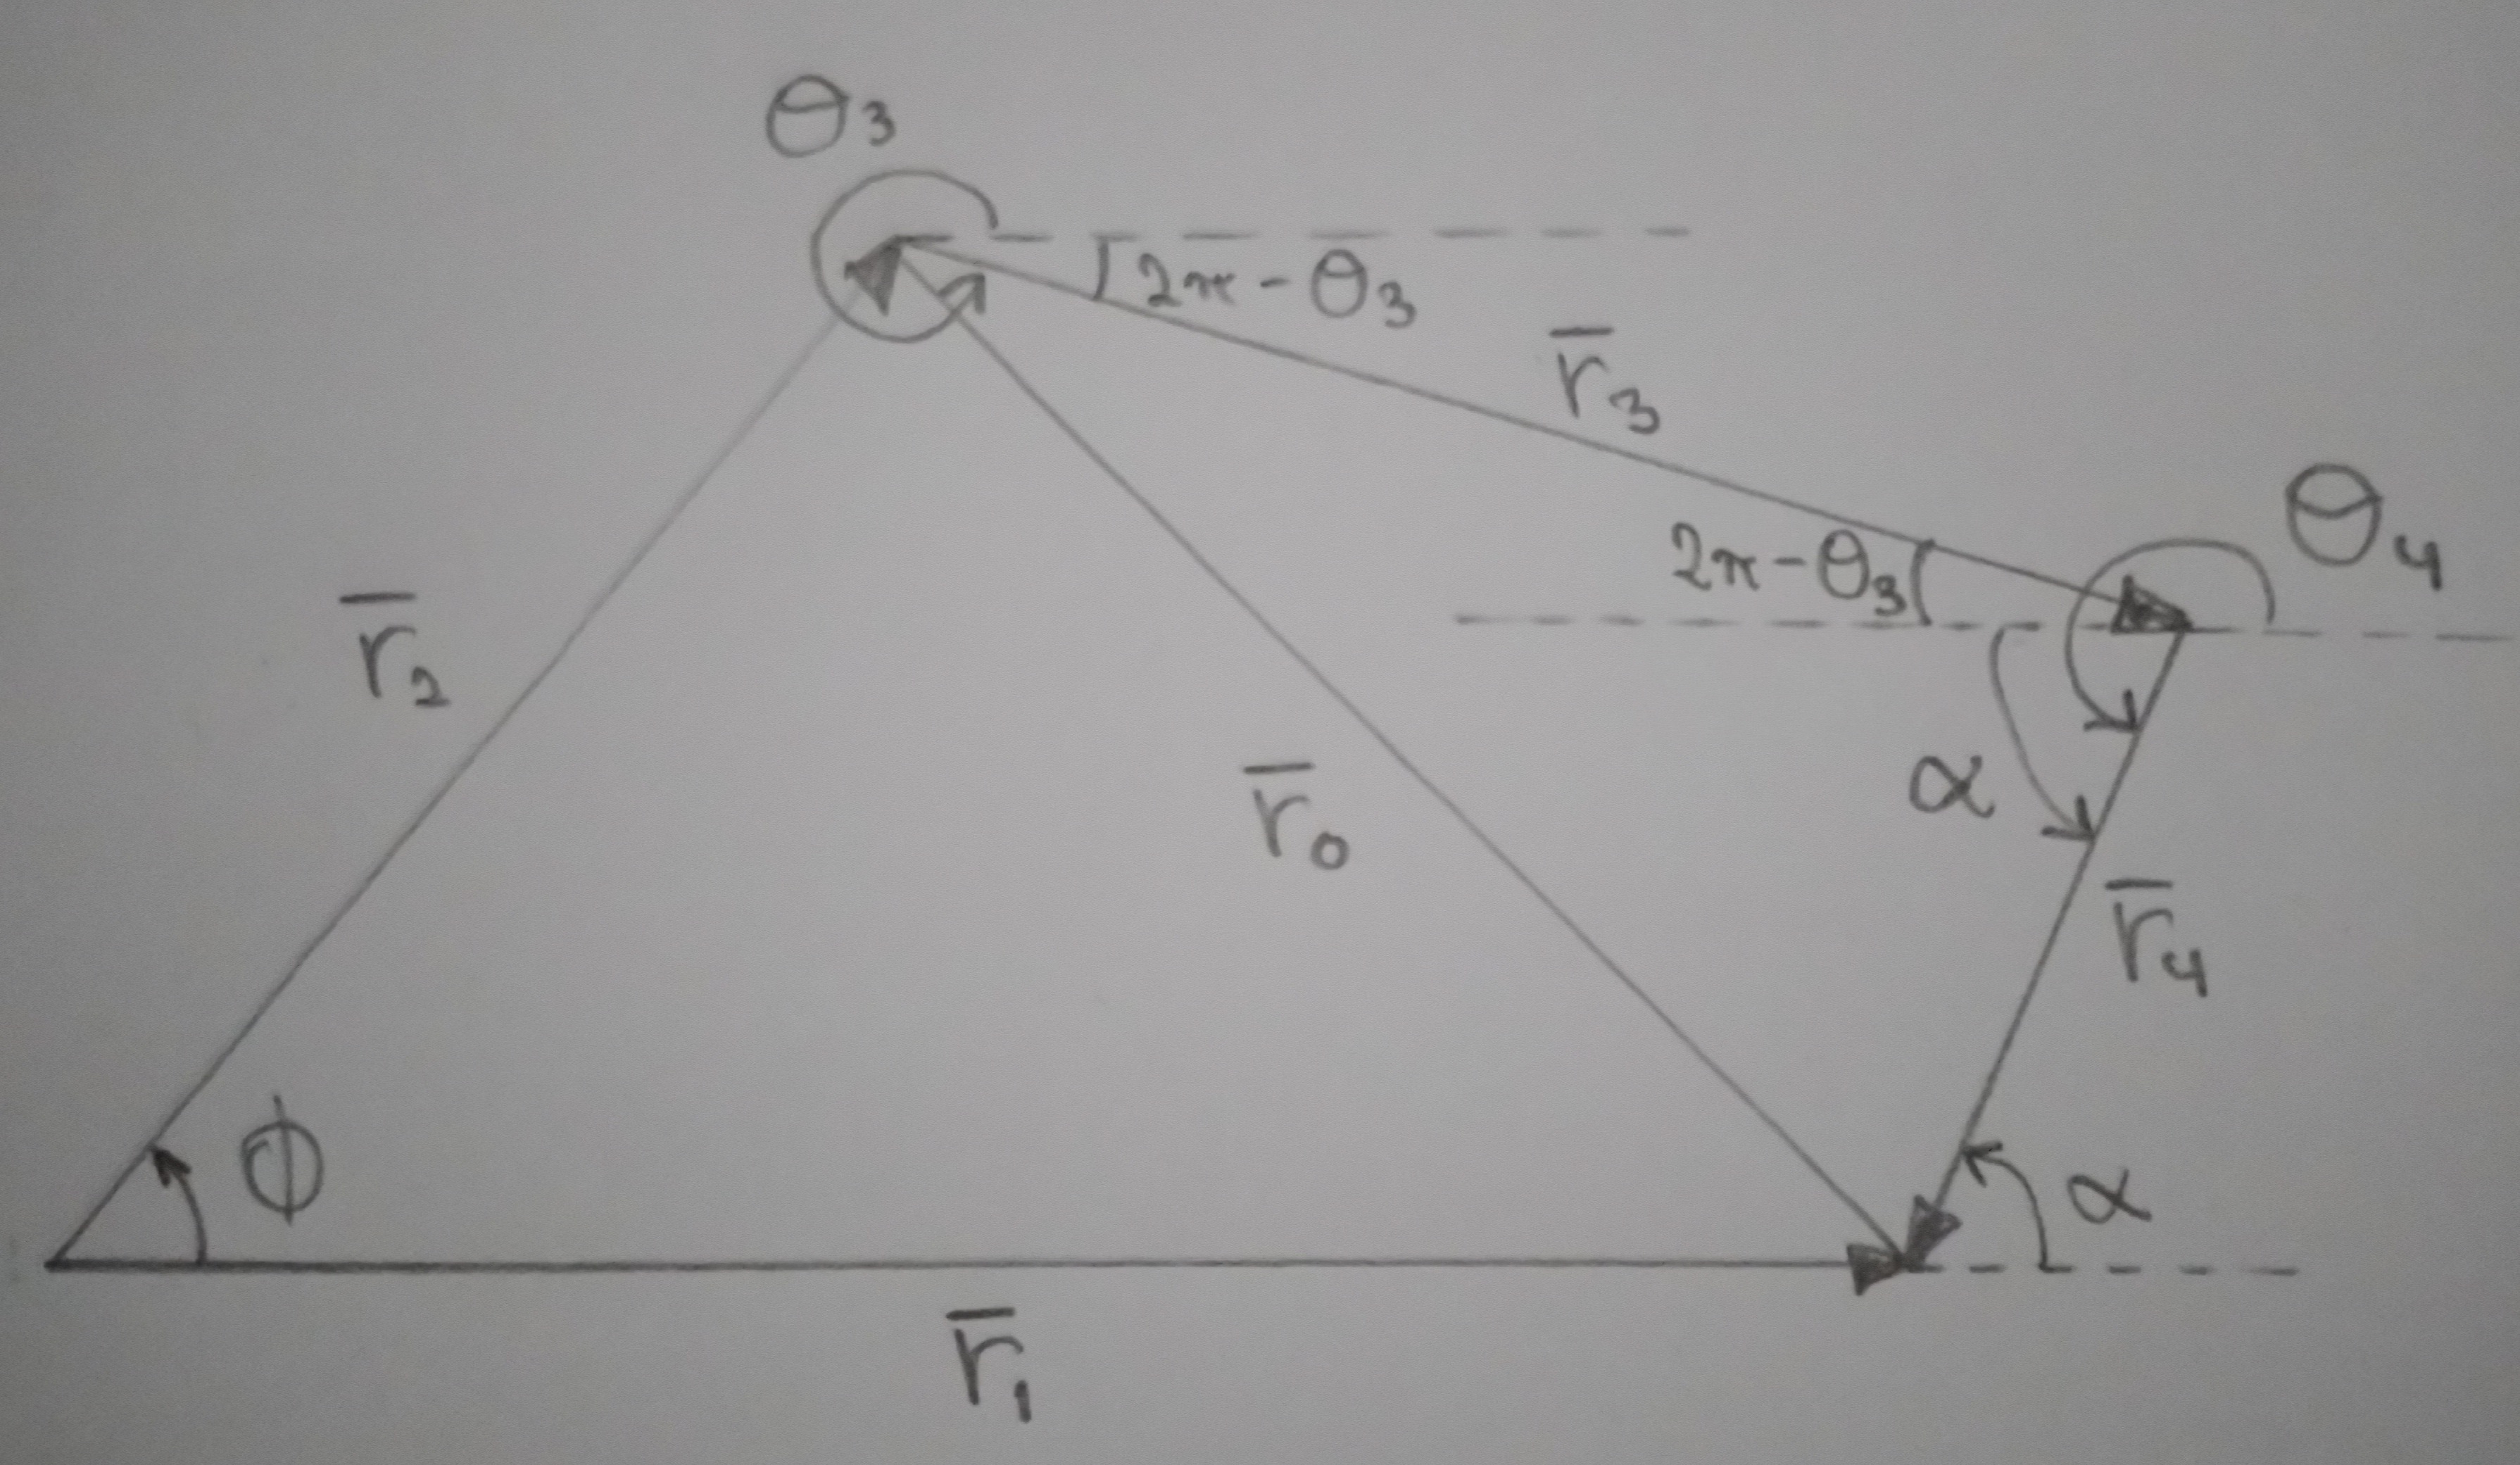 θ₃
2π - θ₃
r̅₃
θ₄
2π - θ₃
r̅₂
α
r̅₀
r̅₄
ϕ
α
r̅₁